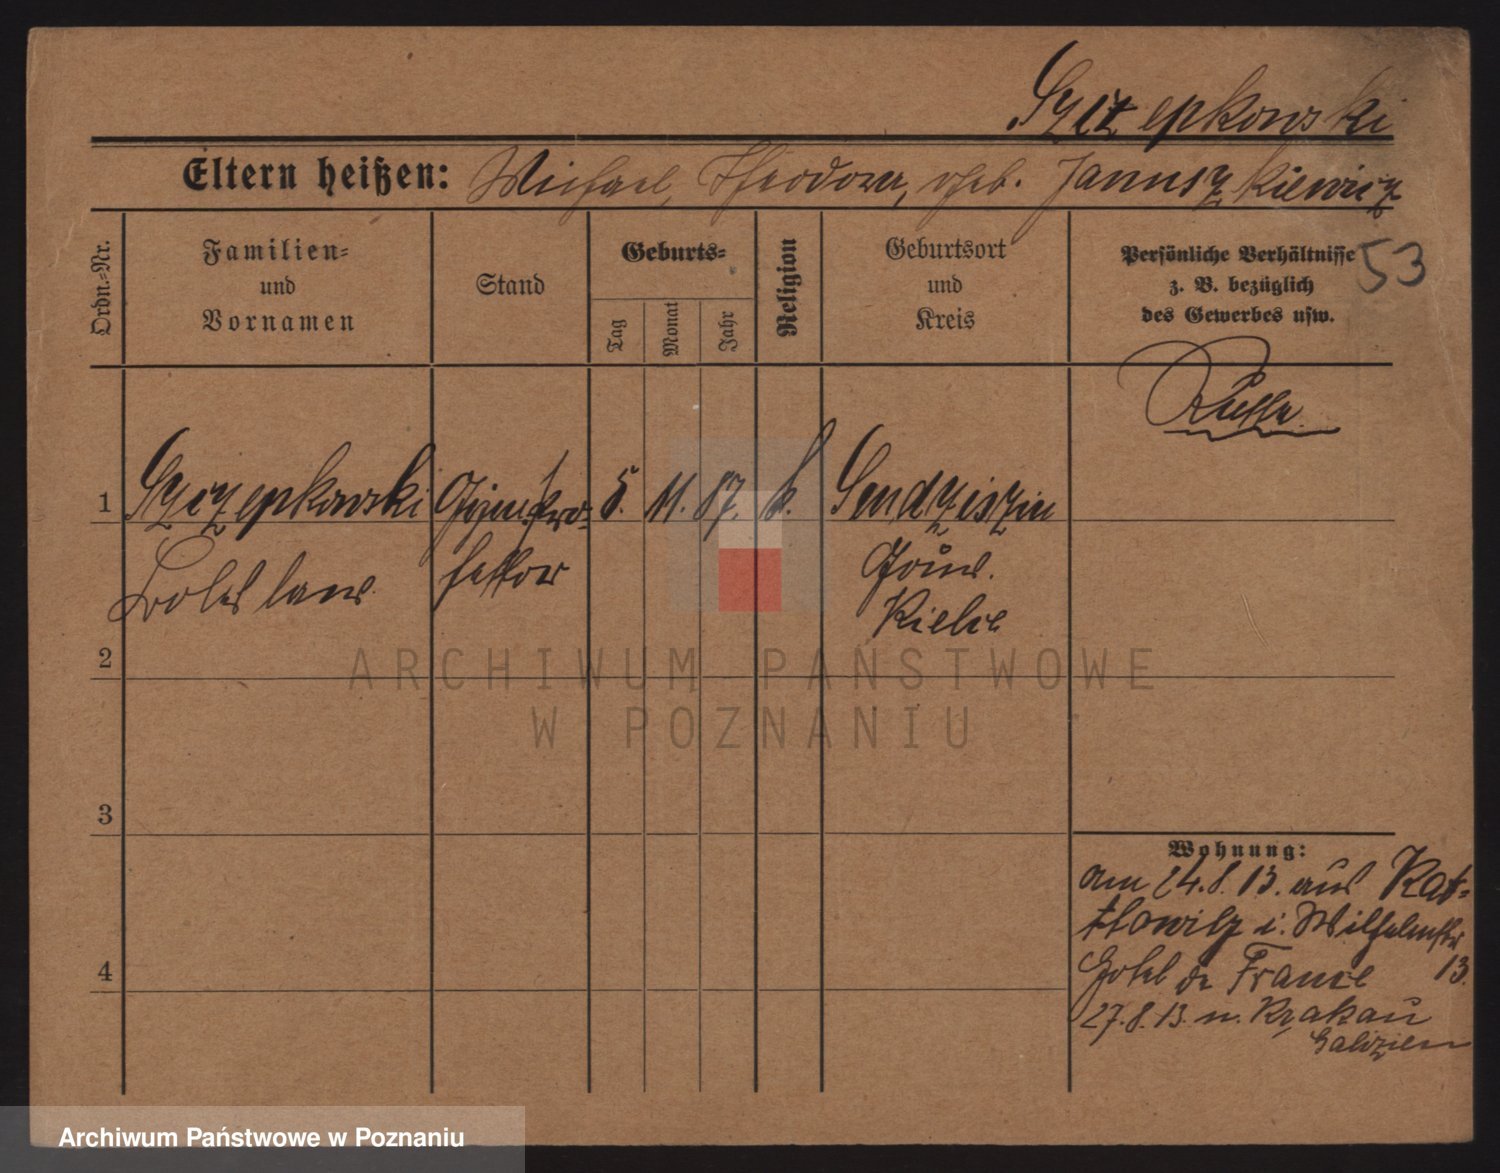 Szczepkowski
Eltern heißen: Michael, Theodora, geb. Januszkiewicz
53
Ordn.-Nr.
Familien-
und
Vornamen
Stand
Geburts-
Tag
Monat
Jahr
Religion
Geburtsort
und
Kreis
Persönliche Verhältnisse
z. B. bezüglich
des Gewerbes usw.
Russe
1 Szczepkowski Gymn. Pro- 5. 11. 87. k. Sendziszin
Boleslaw fessor Gouv.
Kielce
2
3
4
Wohnung:
am 24.8.13. aus Kat-
towitz i. Wilhelmstr
Hotel de France 13.
27.8.13. n. Krakau
Galizien
ARCHIWUM PAŃSTWOWE
W POZNANIU
Archiwum Państwowe w Poznaniu